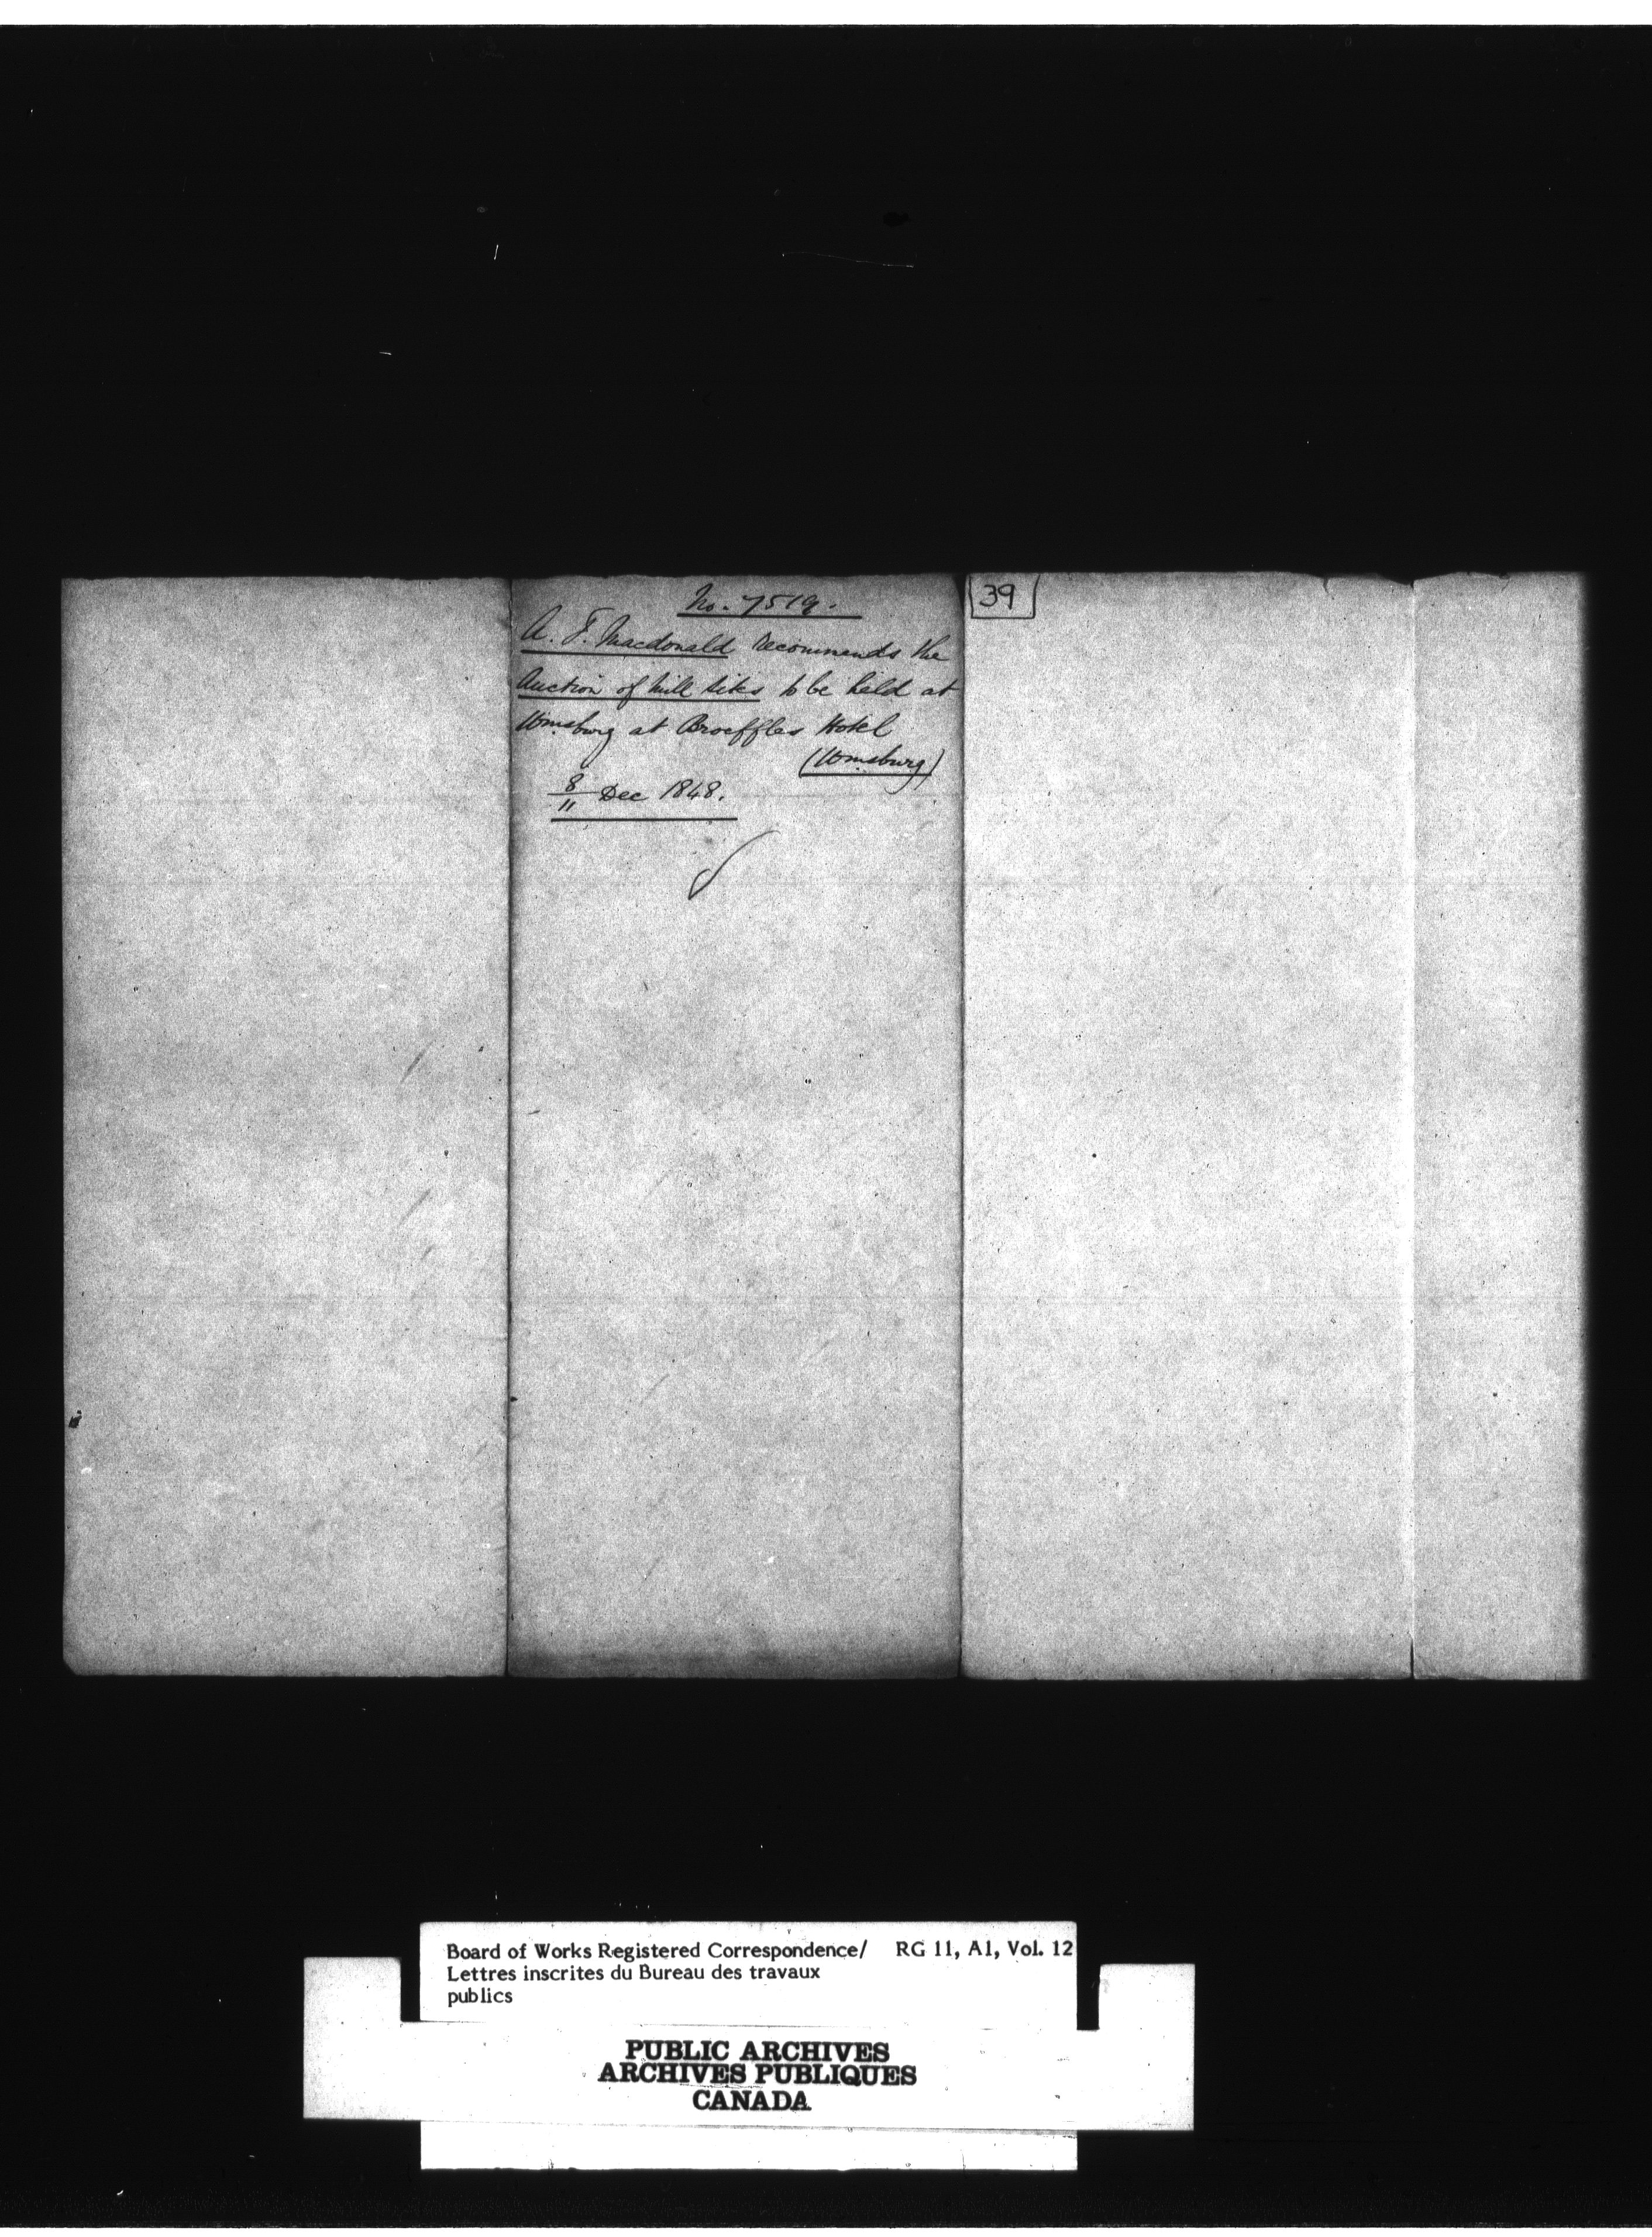 No. 7519.
A. F. Macdonald recommends the
Auction of Mill Sites to be held at
Wmsburg at Broeffles Hotel
(Wmsburg)
8/11 Dec 1848.
39
Board of Works Registered Correspondence/ RG 11, A1, Vol. 12
Lettres inscrites du Bureau des travaux
publics
PUBLIC ARCHIVES
ARCHIVES PUBLIQUES
CANADA